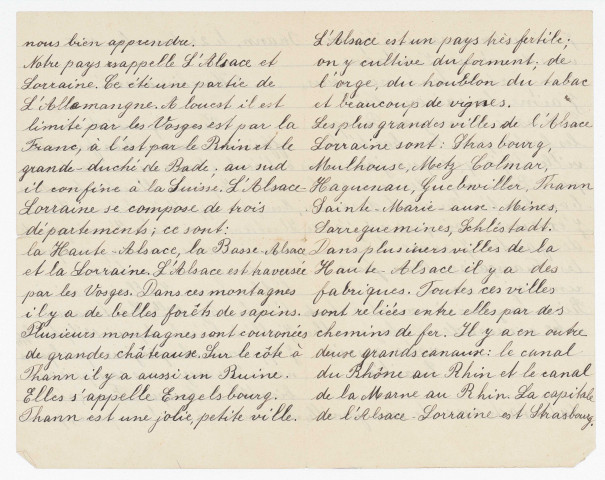 nous bien apprendre.
Notre pays rsappelle L'Alsace et
Lorraine. Ce été une partie de
L'Allemangne. A louest il est
limité par les Vosges est par la
Franc, à l'est par le Rhin et le
grande-duché de Bade; au sud
il confine à la Suisse. L'Alsace-
Lorraine se compose de trois
départements; ce sont:
la Haute-Alsace, la Basse-Alsace
et la Lorraine. L'Alsace est traversée
par les Vosges. Dans ces montagnes
il y a de belles forêts de sapins.
Plusieurs montagnes sont couronées
de grandes châteause. Sur le côte à
Thann il y a aussi un Ruine.
Elles s'appelle Engelsbourg.
Thann est une jolie, petite ville.
L'Alsace est un pays très fertile;
on y cultive du forment; de
l'orge, du houblon du tabac
et beaucoup de vignes.
Les plus grandes villes de l'Alsace
Lorraine sont: Strasbourg,
Mulhouse, Metz Colmar,
Haguenau, Guebwiller, Thann
Sainte-Marie-aux-Mines,
Sarreguemines, Schléstadt.
Dans plusiners villes de la
Haute-Alsace il y a des
fabriques. Toutes ces villes
sont reliées entre elles par des
chemins de fer. Il y a en outre
deuve grands canaux: le canal
du Rhône au Rhin et le canal
de la Marne au Rhin. La capitale
de l'Alsace-Lorraine est Strasbourg.